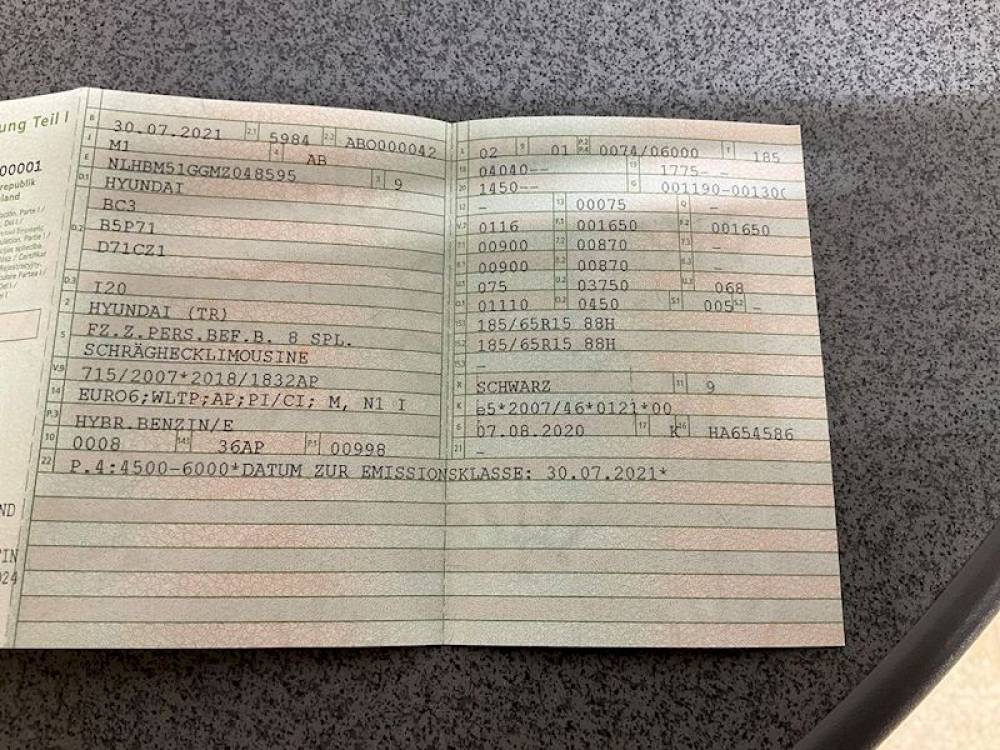 ung Teil I
00001
republik
land
ND
TIN
024
B 30.07.2021 2.1 5984 2.2 ABO000042
J M1 4 AB
E NLHBM51GGMZ048595 3 9
D.1 HYUNDAI
BC3
D.2 B5P71
D71CZ1
D.3 I20
2 HYUNDAI (TR)
5 FZ.Z.PERS.BEF.B. 8 SPL.
SCHRÄGHECKLIMOUSINE
V.9 715/2007*2018/1832AP
14 EURO6;WLTP;AP;PI/CI; M, N1 I
P.3 HYBR.BENZIN/E
10 0008 14.1 36AP P.1 00998
22 P.4:4500-6000*DATUM ZUR EMISSIONSKLASSE: 30.07.2021*
L 02 9 01 P.2 P.4 0074/06000 T 185
18 04040-- 19 1775--
20 1450-- G 001190-00130(
12 – 13 00075 Q –
V.7 0116 F.1 001650 F.2 001650
7.1 00900 7.2 00870 7.3 –
8.1 00900 8.2 00870 8.3
U.1 075 U.2 03750 U.3 068
O.1 01110 O.2 0450 S.1 005 S.2 –
15.1 185/65R15 88H
15.2 185/65R15 88H
15.3 –
R SCHWARZ 11 9
K e5*2007/46*0121*00
6 07.08.2020 17 K 16 HA654586
21 –